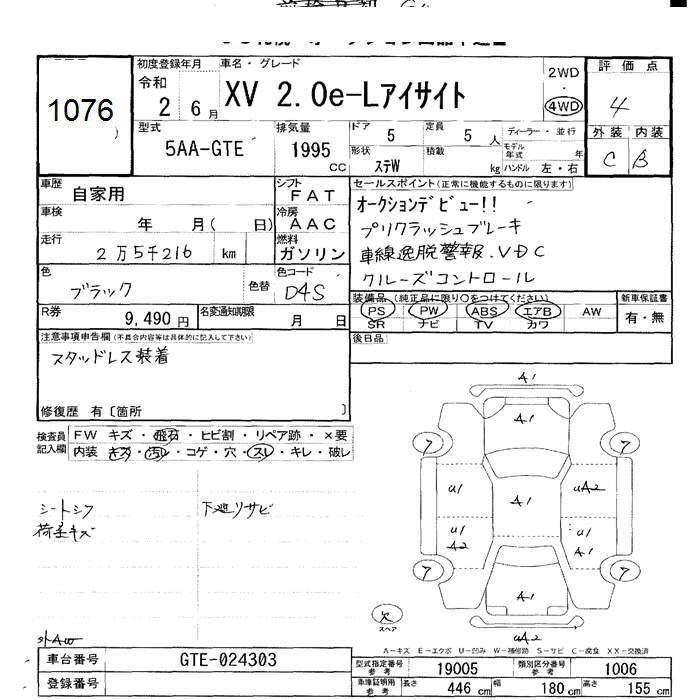 1076
初度登録年月
令和
2 6月
車名・グレード
XV 2.0e-Lアイサイト
2WD
・
4WD
評価点
4
外装 内装
C B
型式
5AA-GTE
排気量
1995
CC
ドア
5
定員
5 人
形状
ステW
積載
kg
ディーラー・並行
モデル年式 年
ハンドル 左・右
車歴
自家用
シフト
FAT
車検
年 月( 日)
冷房
AAC
走行
2万5千216 km
燃料
ガソリン
色
ブラック
色替
色コード
D4S
R券
9,490 円
名変通知期限
月 日
セールスポイント(正常に機能するものに限ります)
オークションデビュー!!
プリクラッシュブレーキ
車線逸脱警報.VDC
クルーズコントロール
装備品(純正品に限り○をつけてください)
PS PW ABS エアB AW
SR ナビ TV カワ
新車保証書
有・無
注意事項申告欄(不具合内容等は具体的に記入して下さい)
スタッドレス装着
修復歴 有〔箇所 〕
後日品
検査員記入欄
FW キズ・飛石・ヒビ割・リペア跡・×要
内装 キズ・汚レ・コゲ・穴・スレ・キレ・破レ
シートシワ
荷室キズ
下廻リサビ
外AW
A1
A1
7 7
U1 A1 UA2
U1 U1
A2 A1
7 7
A1
欠
スペア
UA2
A-キズ E-エクボ U-凹み W-補修跡 S-サビ C-腐食 XX-交換済
車台番号
GTE-024303
登録番号
型式指定番号参考
19005
類別区分番号参考
1006
車庫証明用参考
長さ 446 cm 幅 180 cm 高さ 155 cm